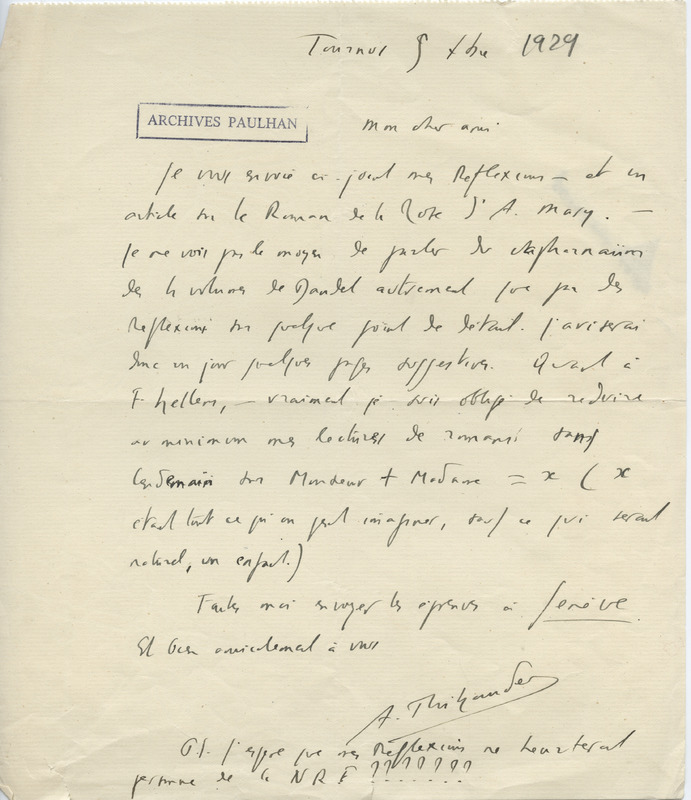 Tournus 9 Xbre 1929
ARCHIVES PAULHAN
Mon cher ami
Je vous envoie ci-joint mes Réflexions — et un
article sur le Roman de la Rose d'A. Mary. —
Je ne vois pas le moyen de parler du
des 4 volumes de Daudet autrement que par des
réflexions sur quelque point de détail. J'aviserai
donc un jour quelques pages suggestives. Quant à
F. Hellens, — vraiment je suis obligé de réduire
au minimum mes lectures de romans sans
lendemain sur Monsieur + Madame = x (x
étant tout ce qu'on peut imaginer, sauf ce qui serait
naturel, un enfant.)
Faites moi envoyer les épreuves à Genève
Et bien amicalement à vous
A. Thibaudet
P.S. J'espère que mes Réflexions ne heurteront
personne de la NRF ????????